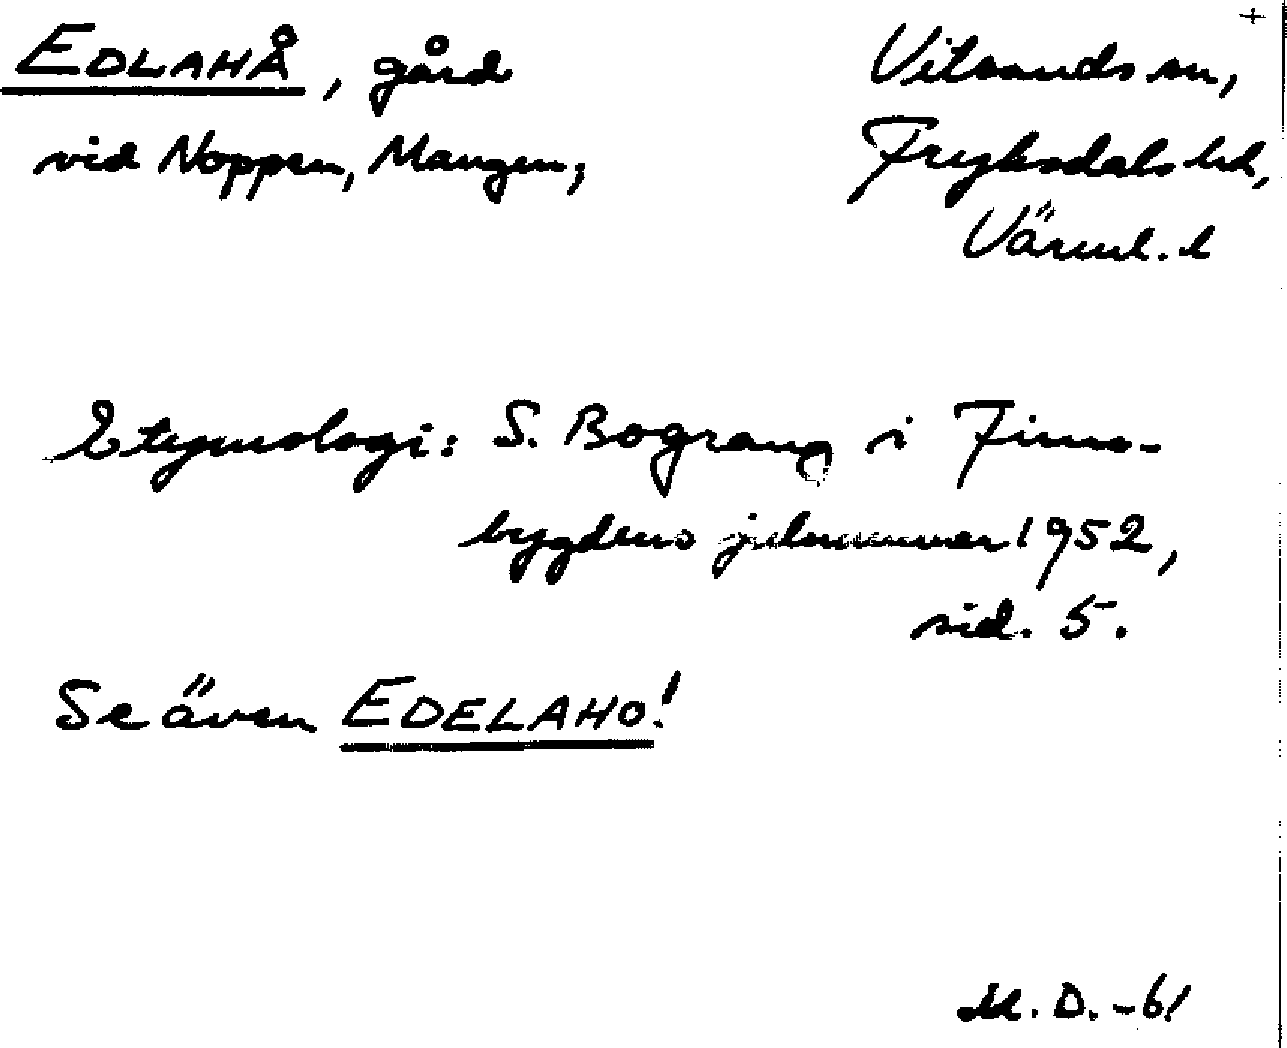 EDLAHÅ, gård
vid Noppen, Mangen,
Vitsands sn,
Fryksdals hd,
Värml. l
Etymologi: S. Bograng i Finno-
bygdens julnummer 1952,
sid. 5.
Se även EDELAHO!
M. D. -61